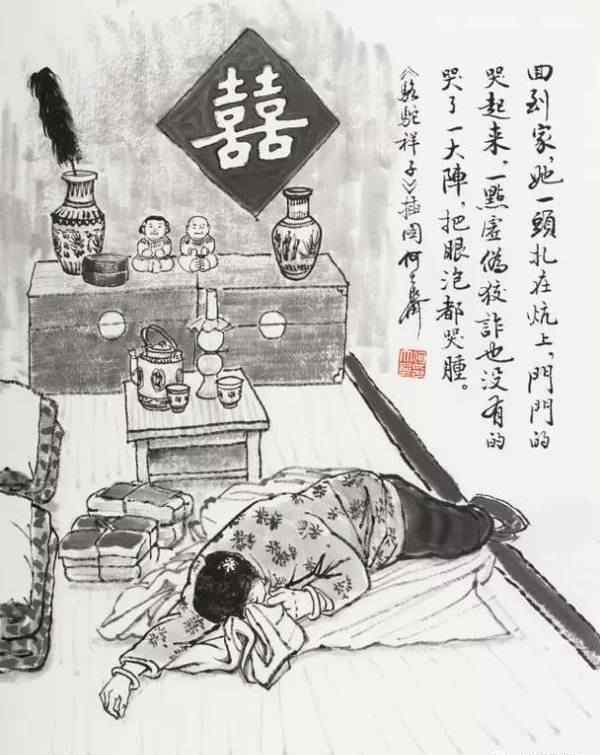 囍
回到家，她一頭扎在炕上，門門的
哭起来，一點虛偽狡詐也没有的
哭了一大陣，把眼泡都哭腫。
《駱駝祥子》插図 何大齊